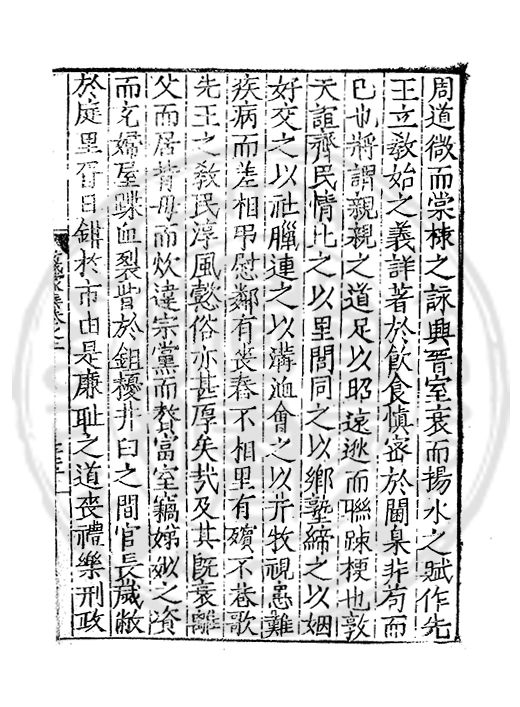 周道微而棠棣之詠興晉室衰而揚水之賦作先
王立敎始之義詳著於飲食慎密於閫臬非苟而
已也將謂親親之道足以昭遠逖而聯踈梗也敦
天誼齊民情比之以里閭同之以鄉塾締之以姻
好交之以社臘連之以溝洫會之以井牧視患難
疾病而差相弔慰鄰有喪舂不相里有殯不巷歌
先王之敎民淳風懿俗亦甚厚矣哉及其旣衰離
父而居背母而炊違宗黨而贅富室竊娣姒之資
而乞婦屋蹀血裂眥於鉏櫌井臼之間官長歲敝
於庭里胥日鉗於市由是廉耻之道喪禮樂刑政